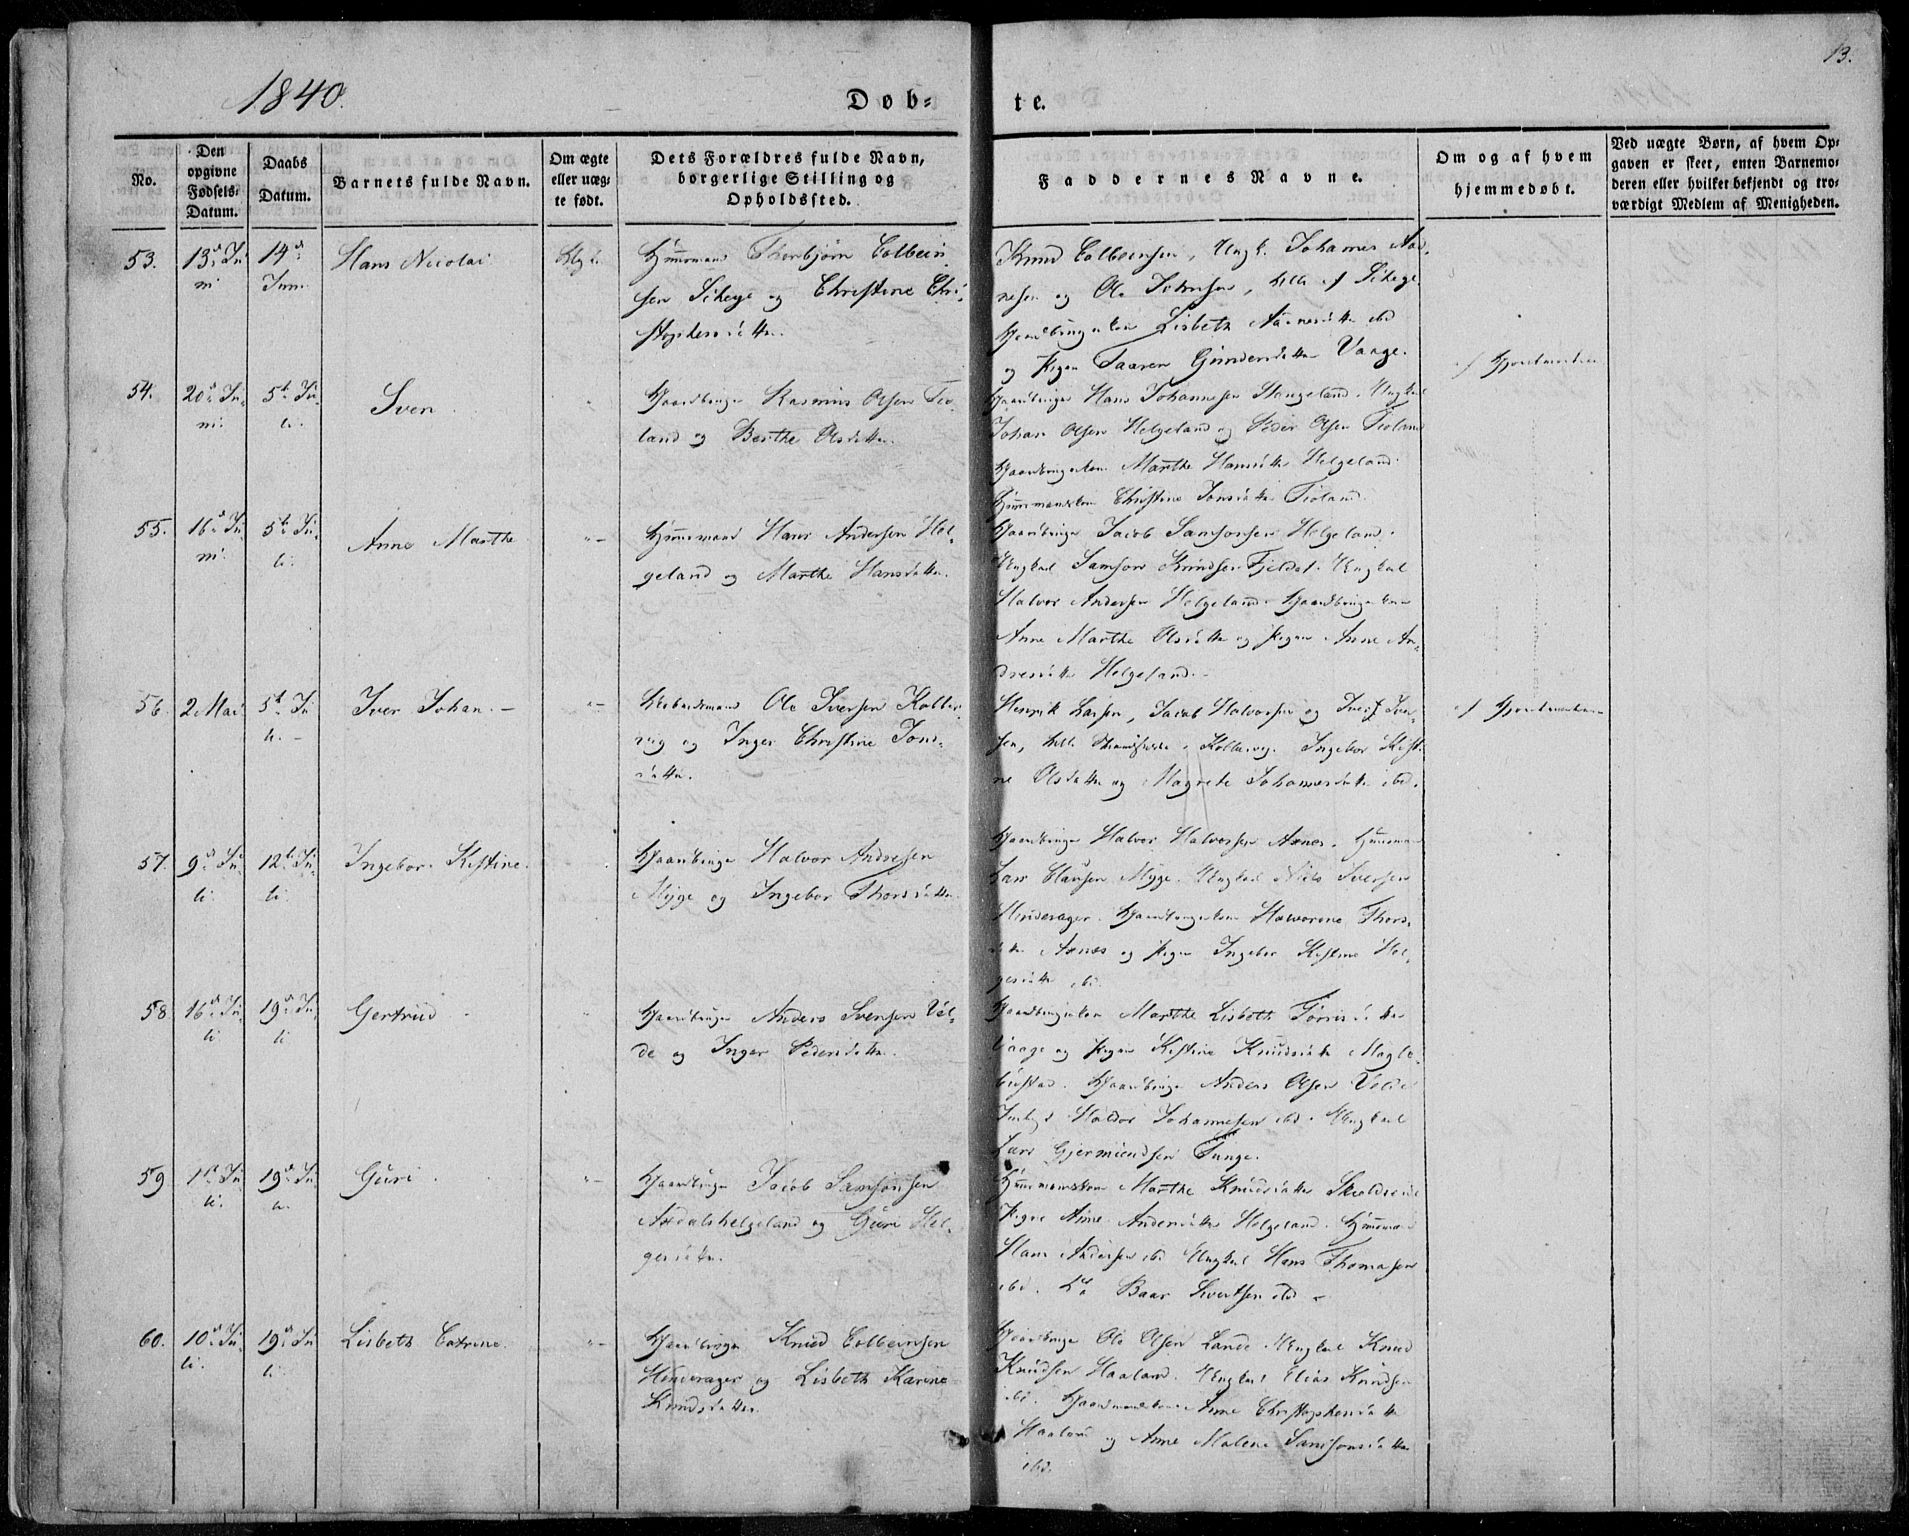 1840.
Døb-
te.
13.
No.
Den opgivne Fødsels-Datum.
Daabs Datum.
Barnets fulde Navn.
Om ægte eller uæg-te født.
Dets Forældres fulde Navn, borgerlige Stilling og Opholdssted.
Faddernes Navne.
Om og af hvem hjemmedøbt.
Ved uægte Børn, af hvem Op-gaven er skeet, enten Barnemo-deren eller hvilket bekjendt og tro-værdigt Medlem af Menigheden.
53.
13de Ju-
ni
14de
Juni
Hans Nicolai
Huusmand Thorbjørn Colbein-
sen og Christine Chri-
stophersdatter.
Knud Colbeinsen, Ungk. Johannes Aad-
nesen og Ole Johnsen, 
Gaardbrugerkone Lisbeth ibd
og Pigen Taaren Gundersdatter Vaage.
af Gjordmoderen
54.
20de Ju-
ni.
5te Ju-
li.
Sven
Gaardbruger Rasmus Olsen Tio-
land og Berthe Olsdatter.
Gaardbruger Hans Johannesen Helgeland. Ungkarl
Johan Olsen Helgeland og Peder Olsen Tioland
Gaardbrugerkone Marthe Hansdatter Helgeland.
Huusmandskone Christine Jonsdatter Tioland.
55.
16de Ju-
ni.
5te Ju-
li.
Anne Marthe
"-
Huusmand Hans Andersen Hel-
geland og Marthe Hansdatter.
Gaardbruger Jacob Samsonsen Helgeland.
Ungkarl Samson Knudsen Fjeldet. Ungkarl
Halvor Andersen Helgeland. Gaardbrugerkone
Anne Marthe Olsdatter og Pigen Anne An-
dersdatter Helgeland.-
56.
2 Mai
5te Ju-
li.-
Iver Johan.-
"-
Ole Iversen Kolbe-
vig og Inger Christine Jons-
datter.
Henrik Larsen, Jacob Halvorsen og Iver Iver-
sen, Kolbevig. Ingebor Kisti-
ne Olsdatter og Magrete Johannesdatter ibd.
af Gjordmoderen
57.
9de Ju-
li.
12te Ju-
li.
Ingebor. Kistine.
Gaardbruger Halvor Andresen
Myge og Ingebor Thorsdatter.
Gaardbruger Halvor Halvorsen Axnes. Huusmand
Lars Clausen Myge. Ungkarl Niels Iversen
Hinderager. Gaardbrugerkone Halvorine Thors-
datter Axnes og Pigen Ingebor Kistine Hel-
gesdatter ibd.
58
16de Ju-
li
19de Ju-
li
Gertrud
Gaardbruger Anders Svensen Vel-
de og Inger Pedersdatter.
Gaardbrugerkone Marthe Lisbeth Tørrisdatter
Vaage og Pigen Kistine Knudsdatter Magle-
bustad. Gaardbruger Anders Olsen Velde
Haldor Johannesen ibd. Ungkarl
Lars Gjermundsen Tunge.
59
1ste Ju-
li.
19de Ju-
li.
Guri
"-
Gaardbruger Jacob Samsonsen
Axdalshelgeland og Guri Hel-
gesdatter.
Huusmandskone Marthe Knudsdatter
Pigen Anne Andersdatter Helgeland. Huusmand
Hans Andersen ibd Ungkarl Hans Thomasen
ibd. Do Baar Sivertsen ibd -
60.
10de Ju-
li.
19de Ju-
li.
Lisbeth Catrine.
"-
Gaardbruger Knud Colbeinsen
Hinderager og Lisbeth Karine
Knudsdatter.
Gaardbruger Ole Olsen Lande. Ungkarl Knud
Knudsen Haaland. Ungkarl Elias Knudsen
ibd. Gaardmandskone Anne Christophersdatter
Haaland og Anne Malene Samsonsdatter
ibd.